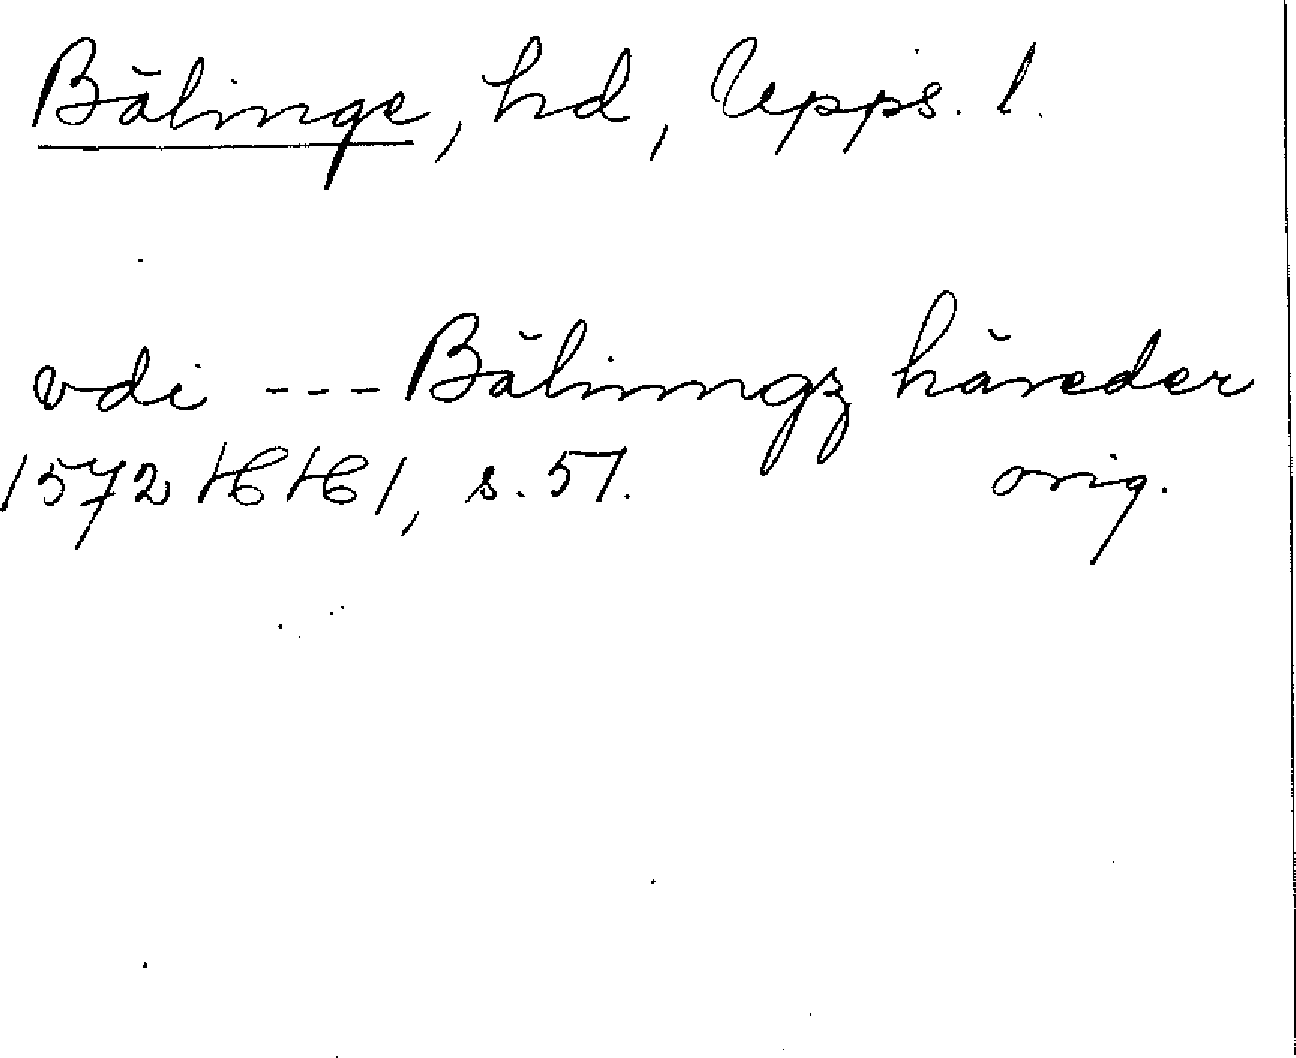 Bälinge, hd, Upps. l.
vdi --- Bälinngz häreder
1572 HH 1, s. 51. orig.